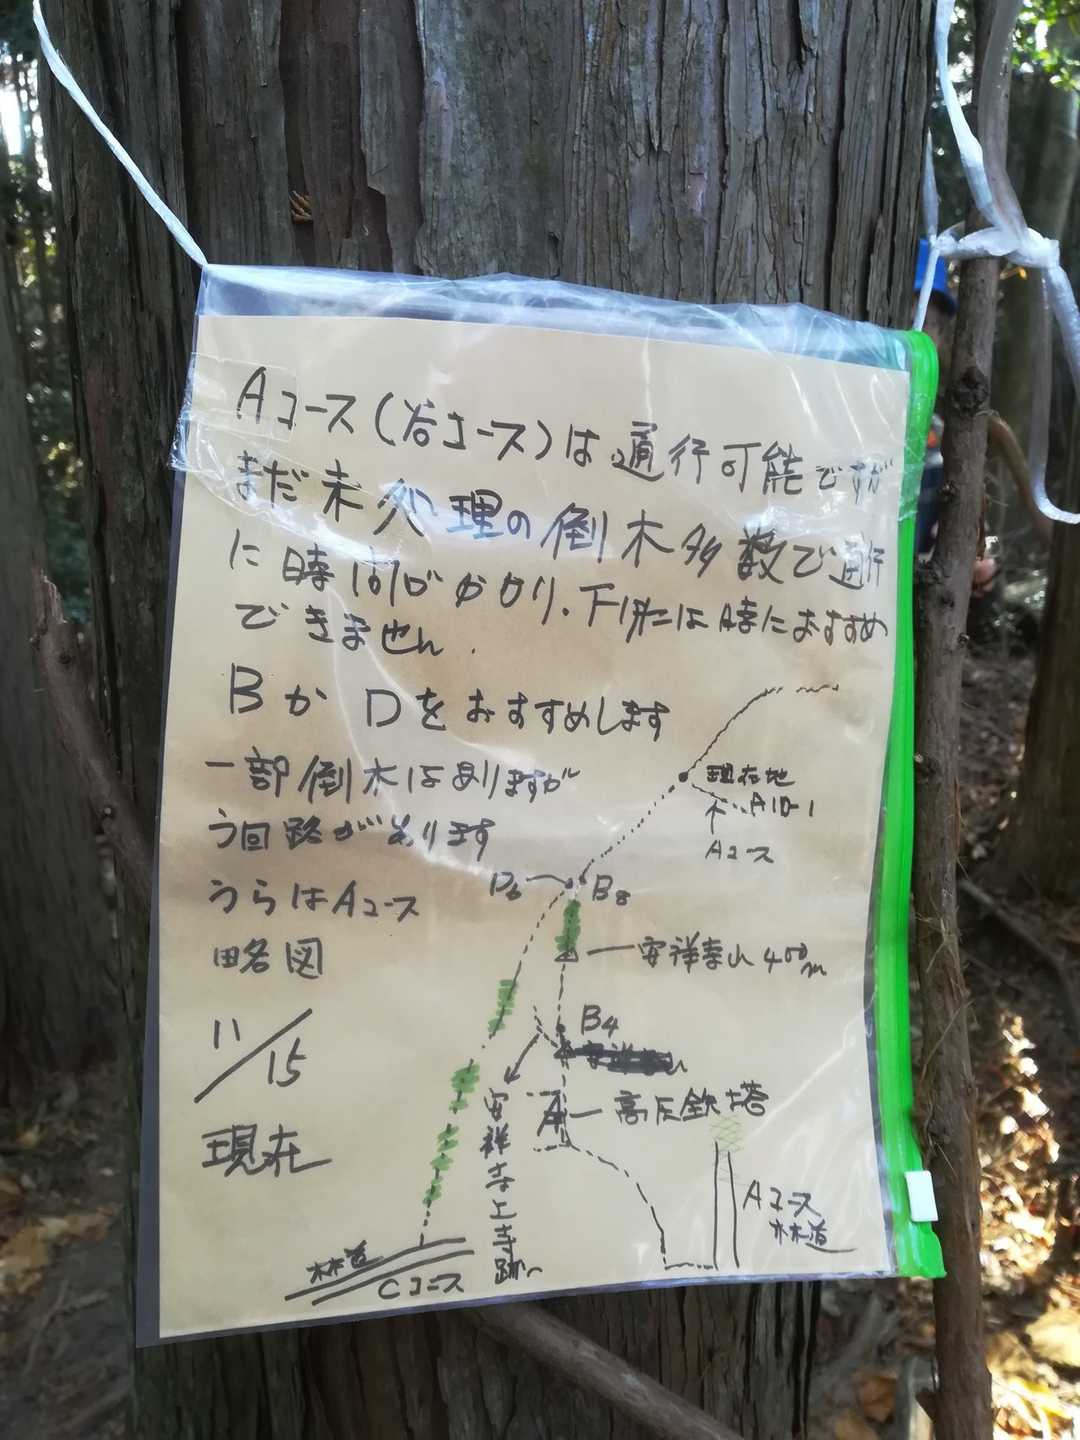 Aコース(谷コース)は通行可能ですが
まだ未処理の倒木多数で通行
に時間がかかり、下山には特におすすめ
できません.
BかDをおすすめします
一部倒木はありますが
う回路があります
うらはAコース
略図
11/15
現在
現在地
A10-1
Aコース
D6
B8
安祥寺山 400m
B4
高圧鉄塔
安祥寺上寺跡へ
Aコース
林道
林道
Cコース